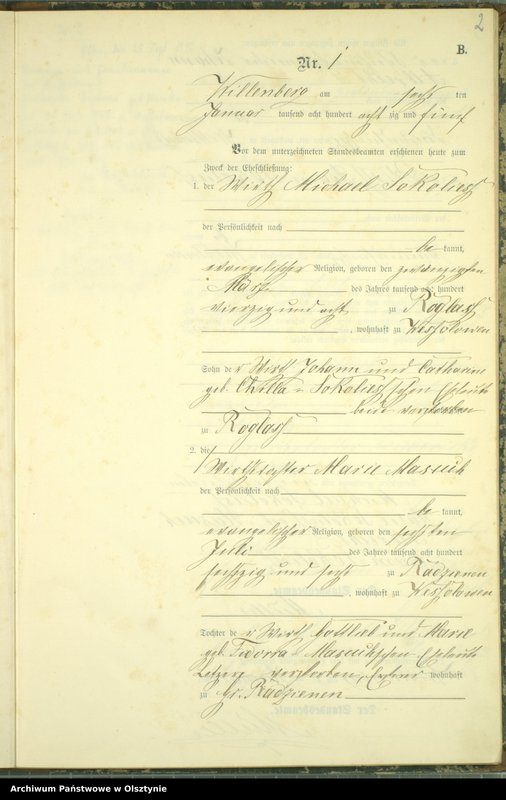 2
B.
Nr. 1
Willenberg am sechs ten
Januar tausend acht hundert acht zig und fünf
Vor dem unterzeichneten Standesbeamten erschienen heute zum
Zweck der Eheschließung:
1. der Wirth Michael Sokolies
der Persönlichkeit nach
be kannt,
evangelischer Religion, geboren den zwanzigten
März des Jahres tausend acht hundert
vierzig und acht zu Roglas
, wohnhaft zu Wessolowen
Sohn de r Wirth Johann und Catharina
geb. Sokolies schen Eheleute
beide verstorben
zu Roglas
2. die
Wirthstochter Marie Massuch
der Persönlichkeit nach
be kannt,
evangelischer Religion, geboren den sechsten
Juli des Jahres tausend acht hundert
sechszig und sechs zu Radzienen
, wohnhaft zu Wessolowen
Tochter de r Wirth Gottlieb und Marie
geb. Massuchschen Eheleute
Letzere verstorben, Ersterer wohnhaft
zu Gr. Radzienen
Archiwum Państwowe w Olsztynie